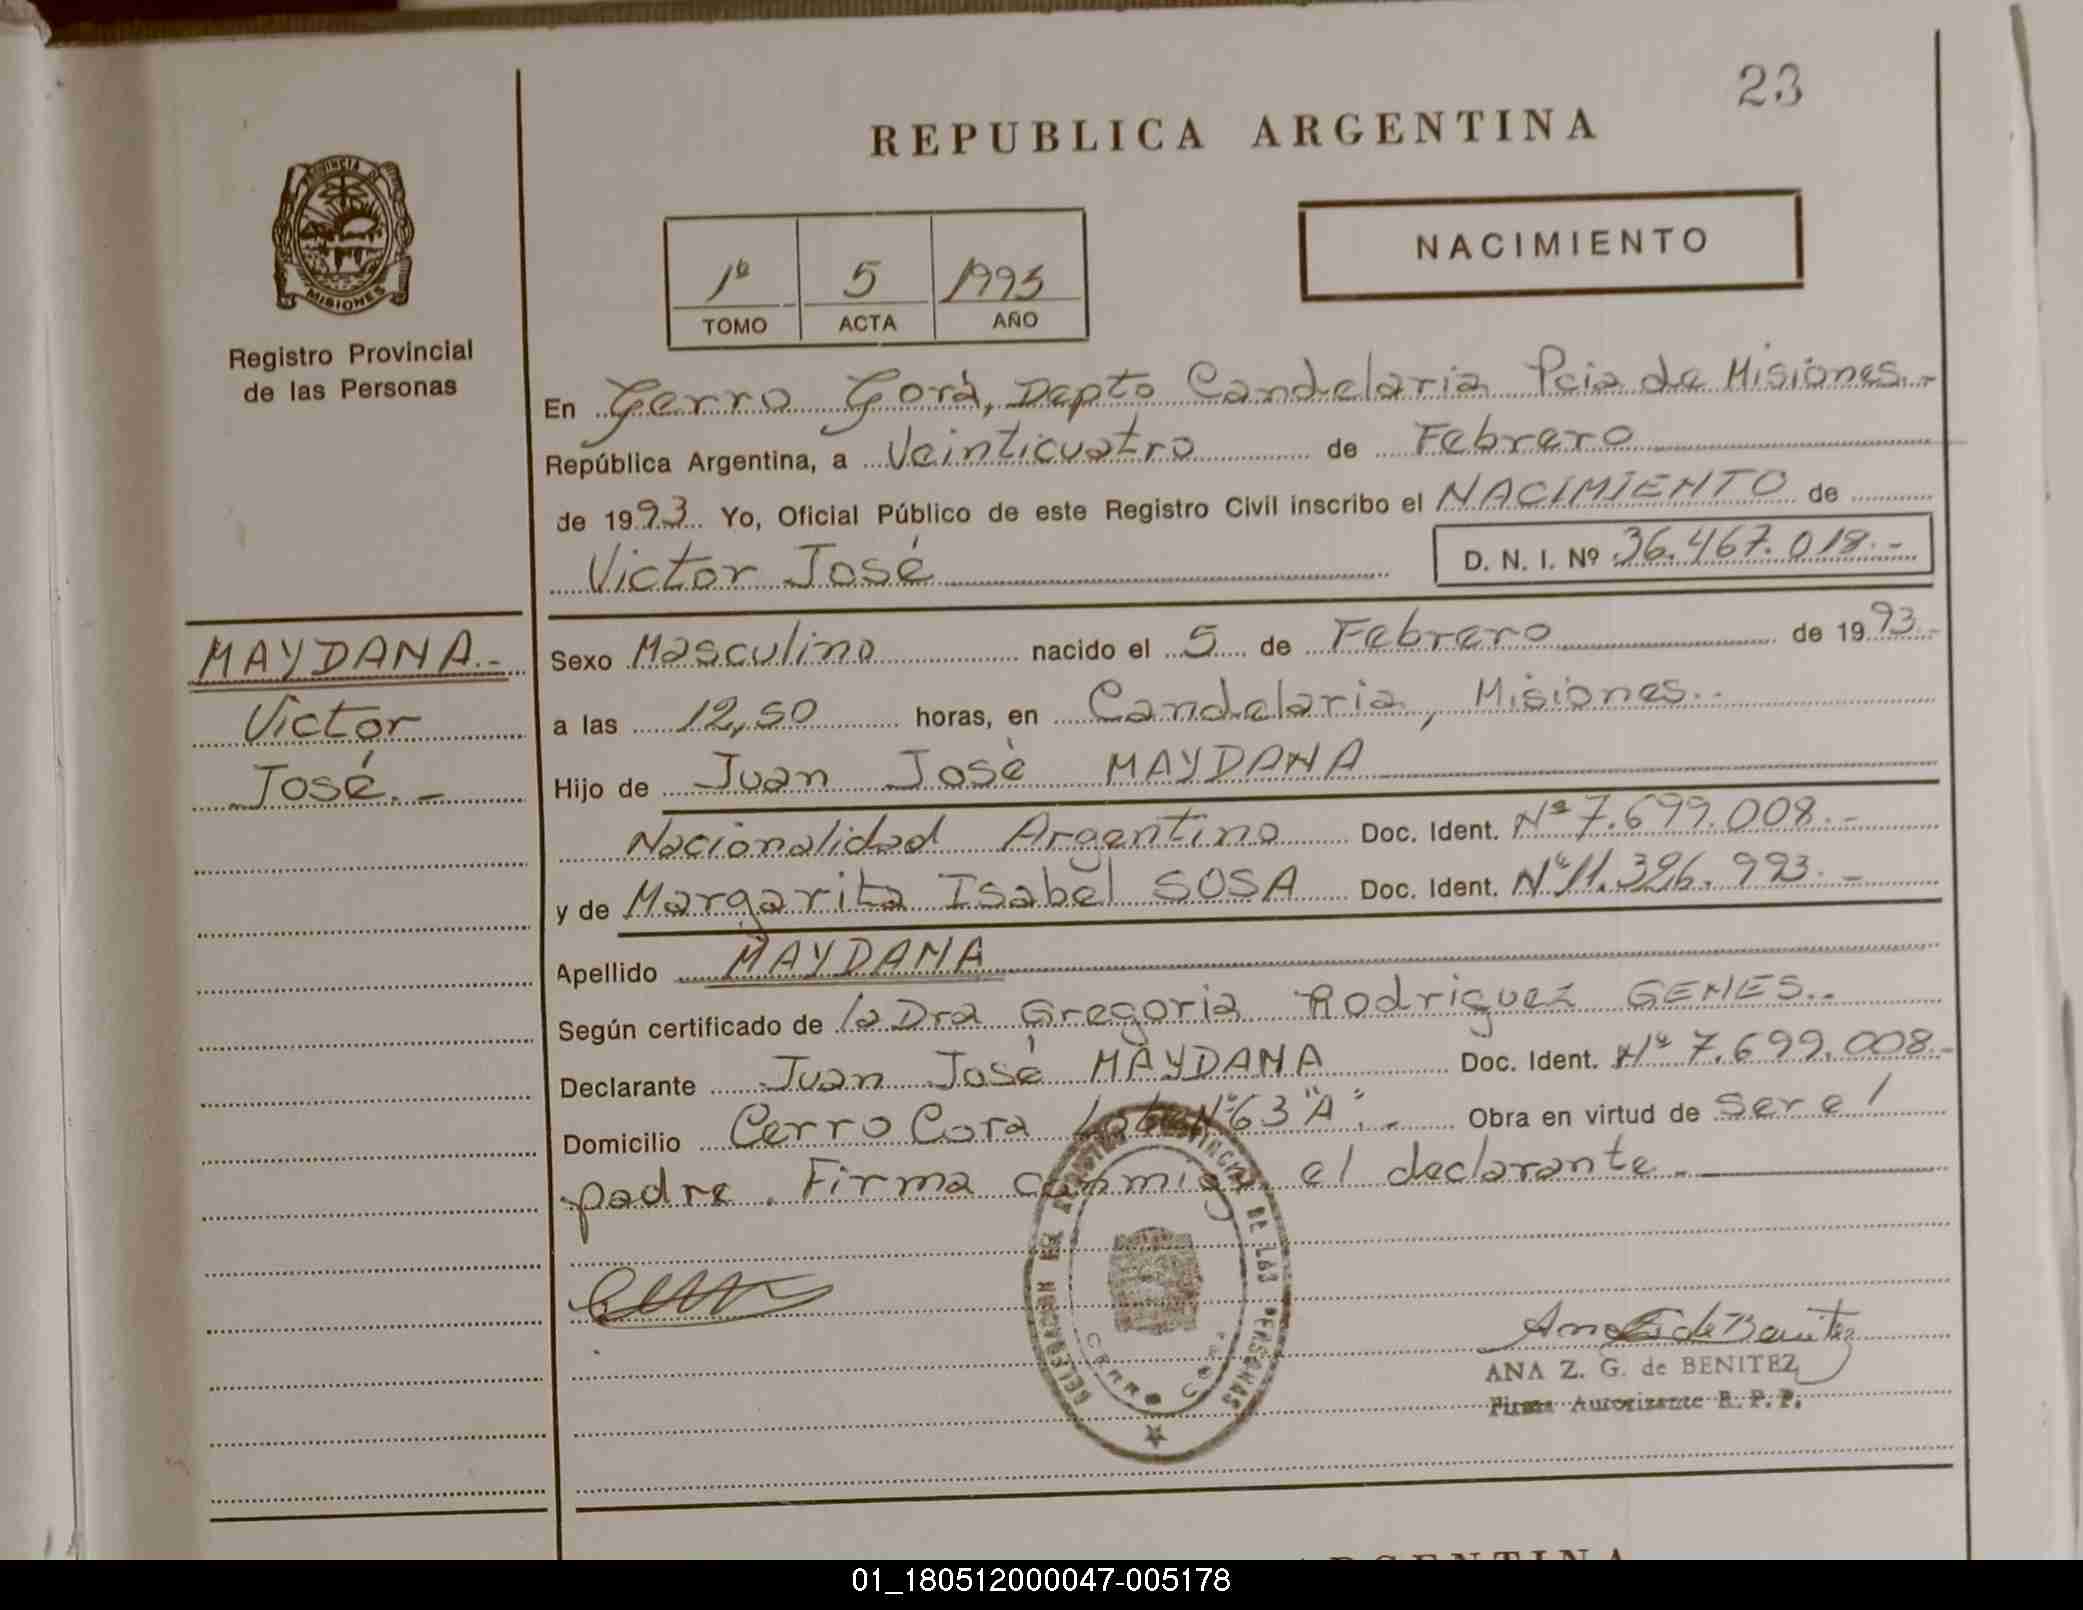 23
REPUBLICA ARGENTINA
PROVINCIA DE
MISIONES
Registro Provincial
de las Personas
1º 5 1993
TOMO ACTA AÑO
NACIMIENTO
En Cerro Corá, Depto Candelaria Pcia de Misiones.-
República Argentina, a Veinticuatro de Febrero
de 1993. Yo, Oficial Público de este Registro Civil inscribo el NACIMIENTO de
Victor José D. N. I. Nº 36.467.018.-
MAYDANA.-
Victor
José.-
Sexo Masculino nacido el 5 de Febrero de 1993.-
a las 12,50 horas, en Candelaria, Misiones.-
Hijo de Juan José MAYDANA
Nacionalidad Argentino Doc. Ident. Nº 7.699.008.-
y de Margarita Isabel SOSA Doc. Ident. Nº 11.326.993.-
Apellido MAYDANA
Según certificado de la Dra Gregoria Rodriguez GEMES.-
Declarante Juan José MAYDANA Doc. Ident. Nº 7.699.008.-
Domicilio Cerro Cora Lote Nº 63 "A".- Obra en virtud de ser el
padre. Firma conmigo el declarante.-
DELEGACION DEL REGISTRO PROVINCIAL DE LAS PERSONAS
CERRO CORA
Ana G de Benitez
ANA Z. G. de BENITEZ
Firma Autorizante R. P. P.
ARGENTINA
01_180512000047-005178